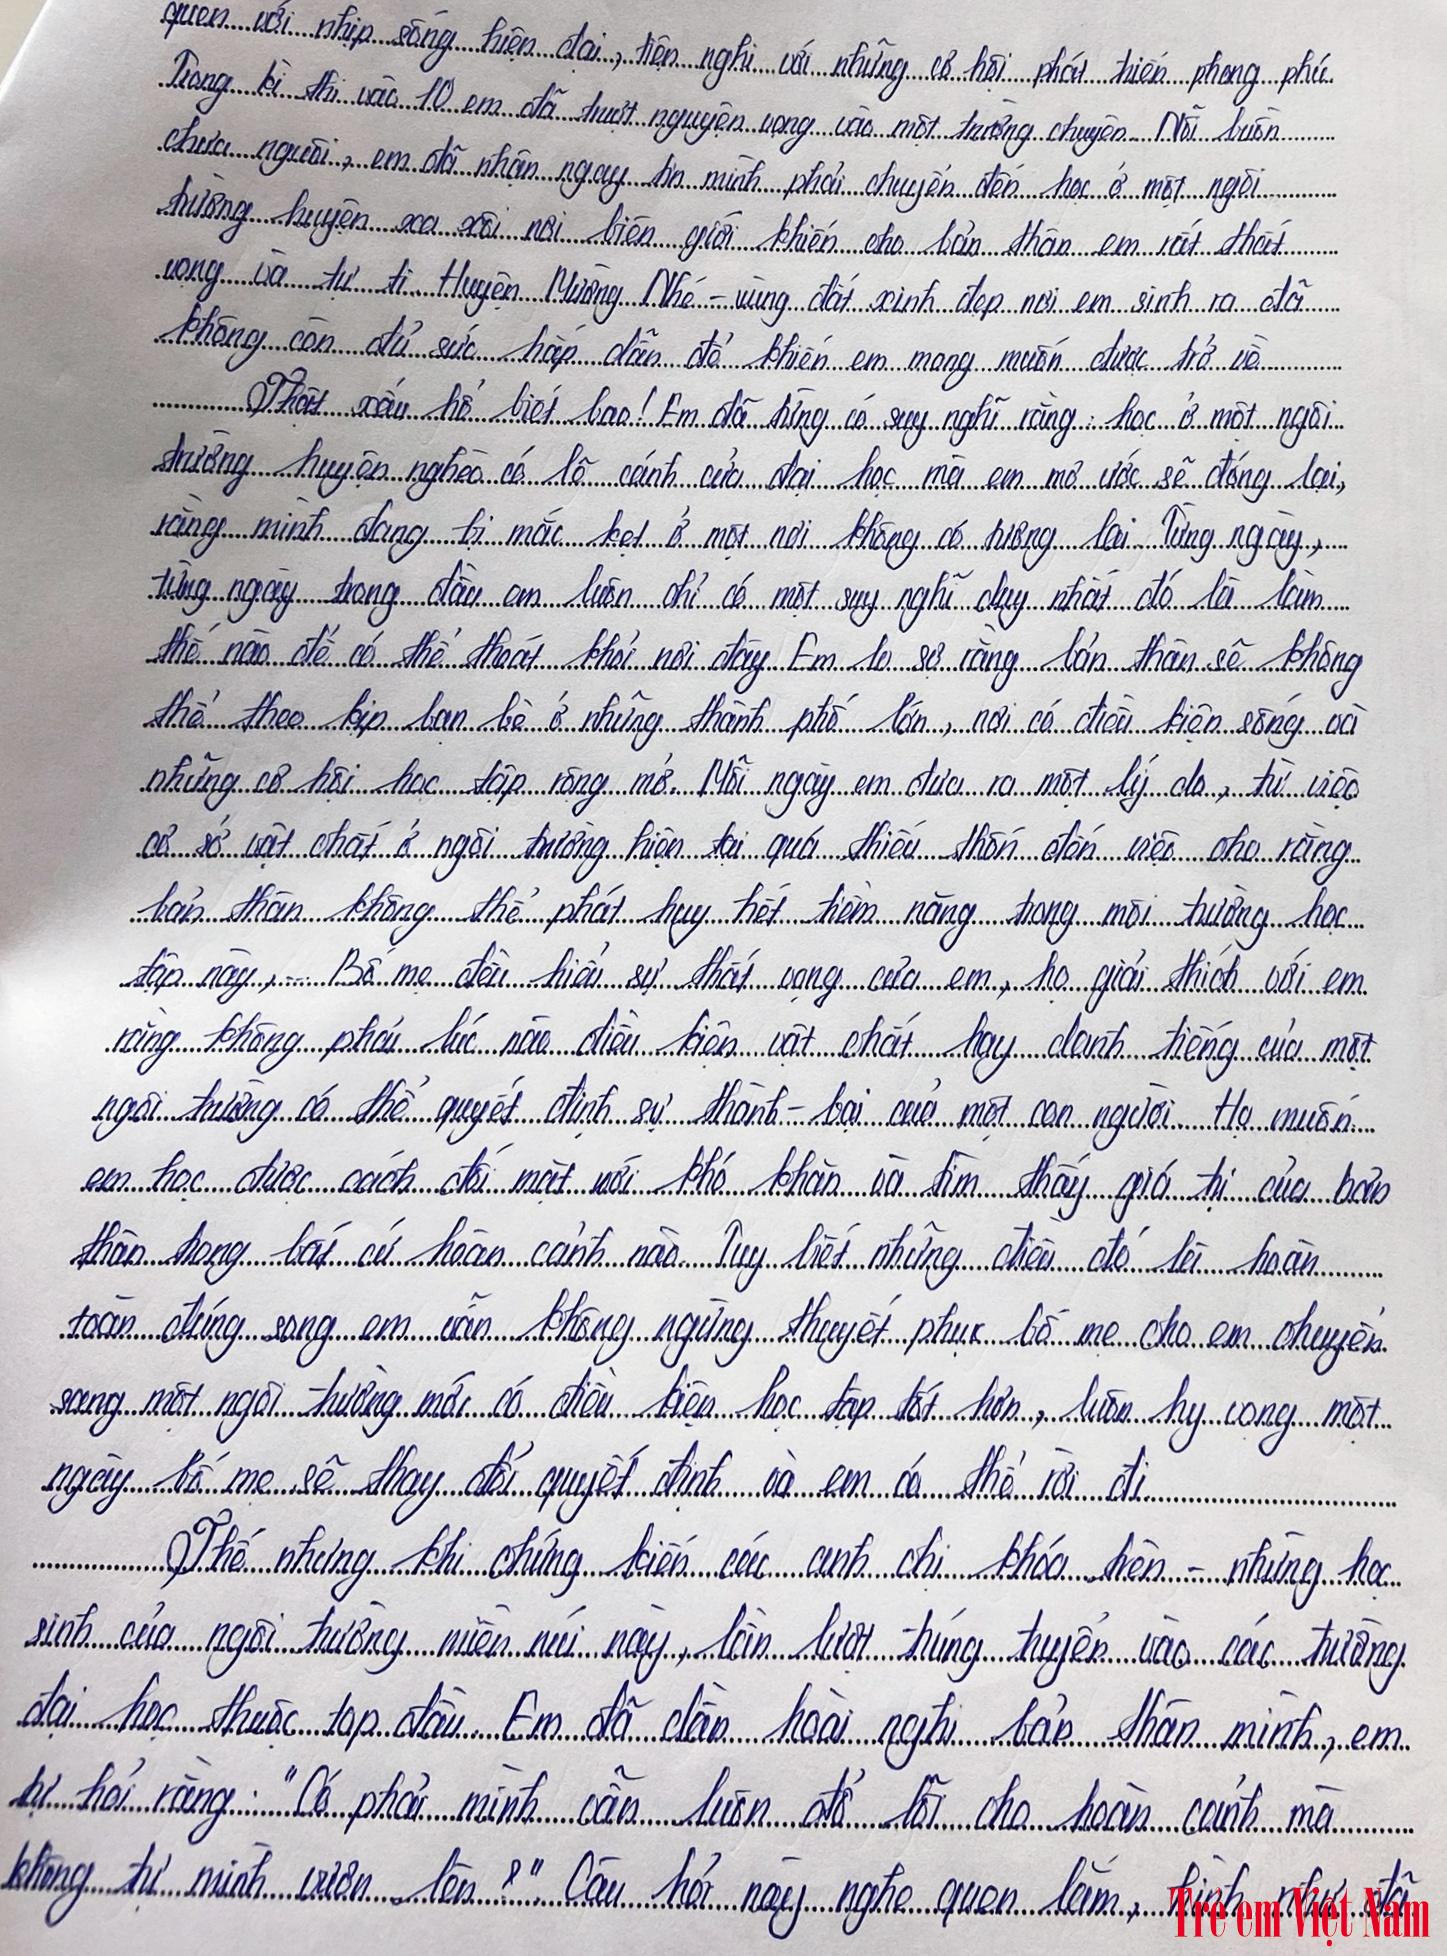 quen với nhịp sống hiện đại, tiện nghi với những cơ hội phát triển phong phú.
Trong kì thi vào 10 em đã trượt nguyện vọng vào một trường chuyên. Nỗi buồn
chưa nguôi, em đã nhận ngay tin mình phải chuyển đến học ở một ngôi
trường huyện xa xôi nơi biên giới khiến cho bản thân em rất thất
vọng và tự ti. Huyện Mường Nhé - vùng đất xinh đẹp nơi em sinh ra đã
không còn đủ sức hấp dẫn để khiến em mong muốn được trở về
Thật xấu hổ biết bao! Em đã từng có suy nghĩ rằng: học ở một ngôi
trường huyện nghèo có lẽ cánh cửa đại học mà em mơ ước sẽ đóng lại,
rằng mình đang bị mắc kẹt ở một nơi không có tương lai. Từng ngày,
từng ngày trong đầu em luôn chỉ có một suy nghĩ duy nhất đó là làm
thế nào để có thể thoát khỏi nơi đây. Em lo sợ rằng bản thân sẽ không
thể theo kịp bạn bè ở những thành phố lớn, nơi có điều kiện sống và
những cơ hội học tập rộng mở. Mỗi ngày em đưa ra một lý do, từ việc
cơ sở vật chất ở ngôi trường hiện tại quá thiếu thốn đến việc cho rằng
bản thân không thể phát huy hết tiềm năng trong môi trường học
tập này,... Bố mẹ đều hiểu sự thất vọng của em, họ giải thích với em
rằng không phải lúc nào điều kiện vật chất hay danh tiếng của một
ngôi trường có thể quyết định sự thành - bại của một con người. Họ muốn
em học được cách đối mặt với khó khăn và tìm thấy giá trị của bản
thân trong bất cứ hoàn cảnh nào. Tuy biết những điều đó là hoàn
toàn đúng song em vẫn không ngừng thuyết phục bố mẹ cho em chuyển
sang một ngôi trường mới có điều kiện học tập tốt hơn, luôn hy vọng một
ngày bố mẹ sẽ thay đổi quyết định và em có thể rời đi.
Thế nhưng khi chứng kiến các anh chị khóa trên - những học
sinh của ngôi trường miền núi này, lần lượt trúng tuyển vào các trường
đại học thuộc top đầu. Em đã dần hoài nghi bản thân mình, em
tự hỏi rằng: "Có phải mình vẫn luôn đổ lỗi cho hoàn cảnh mà
không tự mình vươn lên?". Câu hỏi này nghe quen lắm, hình như đã
Trẻ em Việt Nam